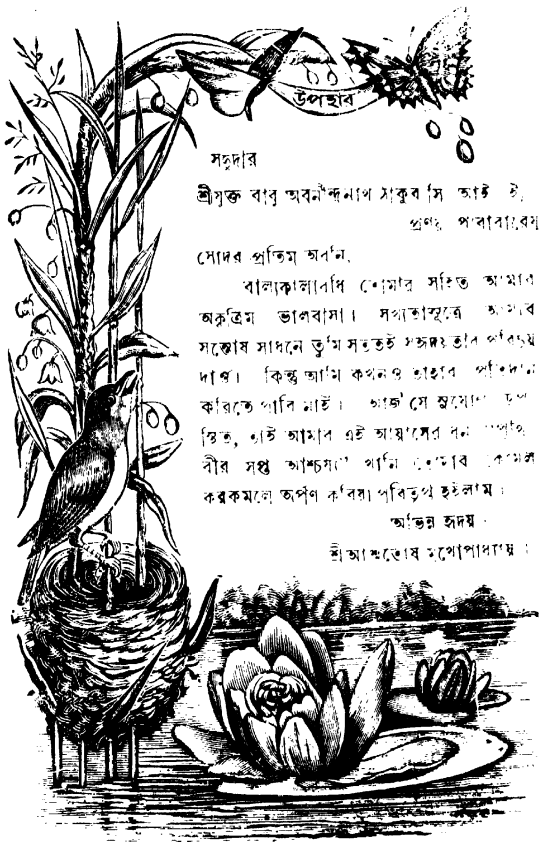 উপহার
সহৃদার
শ্রীযুক্ত বাবু অবনীন্দ্রনাথ ঠাকুর সি আই ই,
প্রণয় পারাবারেষু
সোদর প্রতিম অবনি,
বাল্যকালাবধি তোমার সহিত আমার
অকৃত্রিম ভালবাসা। সখ্যতাসূত্রে আমার
সন্তোষ সাধনে তুমি সততই সহৃদয়তার পরিচয়
দাও। কিন্তু আমি কখনও তাহার প্রতিদান
করিতে পারি নাই। আজ সে সুযোগ উপ-
স্থিত, তাই আমার এই আয়াসের ধন পৃথি-
বীর সপ্ত আশ্চর্য্য খানি তোমার কোমল
করকমলে অর্পণ করিয়া পরিতৃপ্ত হইলাম।
অভিন্ন হৃদয়
শ্রীআশুতোষ মুখোপাধ্যায়।